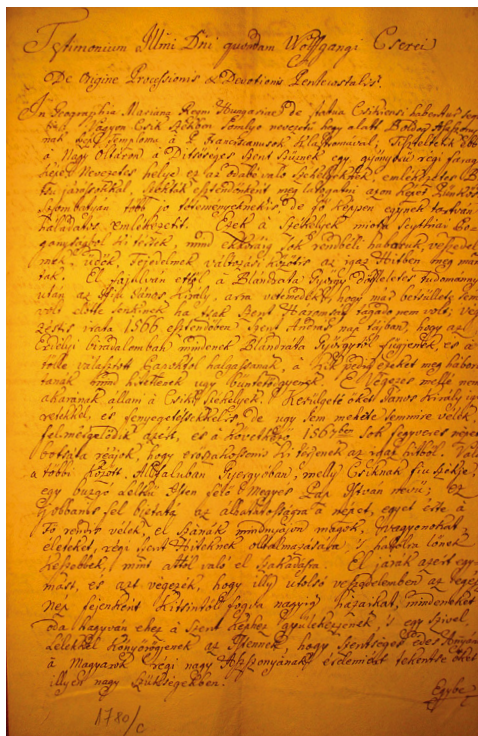 Testimonium Illmi Dni quondam Wolffgangi Cserei
De Origine Processionis & Devotionis Pentecostalis.
In Geographia Mariana Regni Hungariae de statua Csikiensi habentur
Nagyon Csik Székben Somlyo nevezetü hegy alatt Boldog Aszszony
nak temploma à P. Franciscanusok Klastromával, Tiszteltetik ebbe
à Nagy Oltáron à Ditsösséges Szent Szüznek egy gyönyörü régi faragott
képe. Nevezetes helye ez az odabe való Székelyeknek, emlékezetes
járásokkal, szokták esztendönként meg látogatni azon képet Pünkösd
Szombatyán több jó téteményeknek is de fö képpen egynek tartván
háládatos emlékezetit. Ezek à Székelyek miolta Scythiai
ki tértek, mind ekkoráig sok rendbéli háboruk, veszedel
mek, ucok Fejedelmek változási között is az igaz Hitben meg marad
tak. El hitetvén ettöl à Blandrata György dühöletes tudománnya
után az Ifiu János Király, arra vetemedék, hogy már betsülleti sem
volt elötte senkinek ha tsak Szent Háromság tagadó nem volt; vég
zést is irata 1566 esztendöben Szent András nap tájban, hogy az
Erdélyi birodalomban mindenek Blandráta Györgytöl függjenek és à
tölle választott Papoktol halgassanak, à kik pedig épeket meg
tanák mind hitetlenek ugy büntetödgyenek. El Végezés mellé nem
akarának állani à Csiki Székelyek. Késztgeté öket János Király
retekkel, és fenyegetésekkel is, de ugy sem mehete semmire vélek,
felmérgelödik azért, és à következö 1567ben sok fegyveres népet
botsáta réájok, hogy eröszakossan is ki térjenek az igaz hitböl. Vala
a többi között Alfaluban Gyergyóban, melly Csiknak fiu Székje,
egy buzgo lelkü Isten félö Megyés Pap István nevü; ez
fel biztatá az álhatatosságra à népet, egyet érte à
Fö rendis vélek, el szánák mindnyájan magok, vagyonokat,
életeket, régi Szent Hiteknek oltalmazására, 's halálra lönek
készebbek, mint attol való el szakadásra. El járák azért egy
mást, és azt végezék, hogy illy utolsó veszedelemben az egész
Nép fejenként kitsintöl fogva nagyig házakat, mindeneket
oda hagyván ehez à Szent képhez gyülekezzenek, 's egy szivel,
lélekkel könyörögjenek az Istennek, hogy Szentséges Édes Annyának
à Magyarok régi nagy Aszszonyának érdemiért tekéntse öket
illyen nagy szükségekben.
Egybe
1780/c